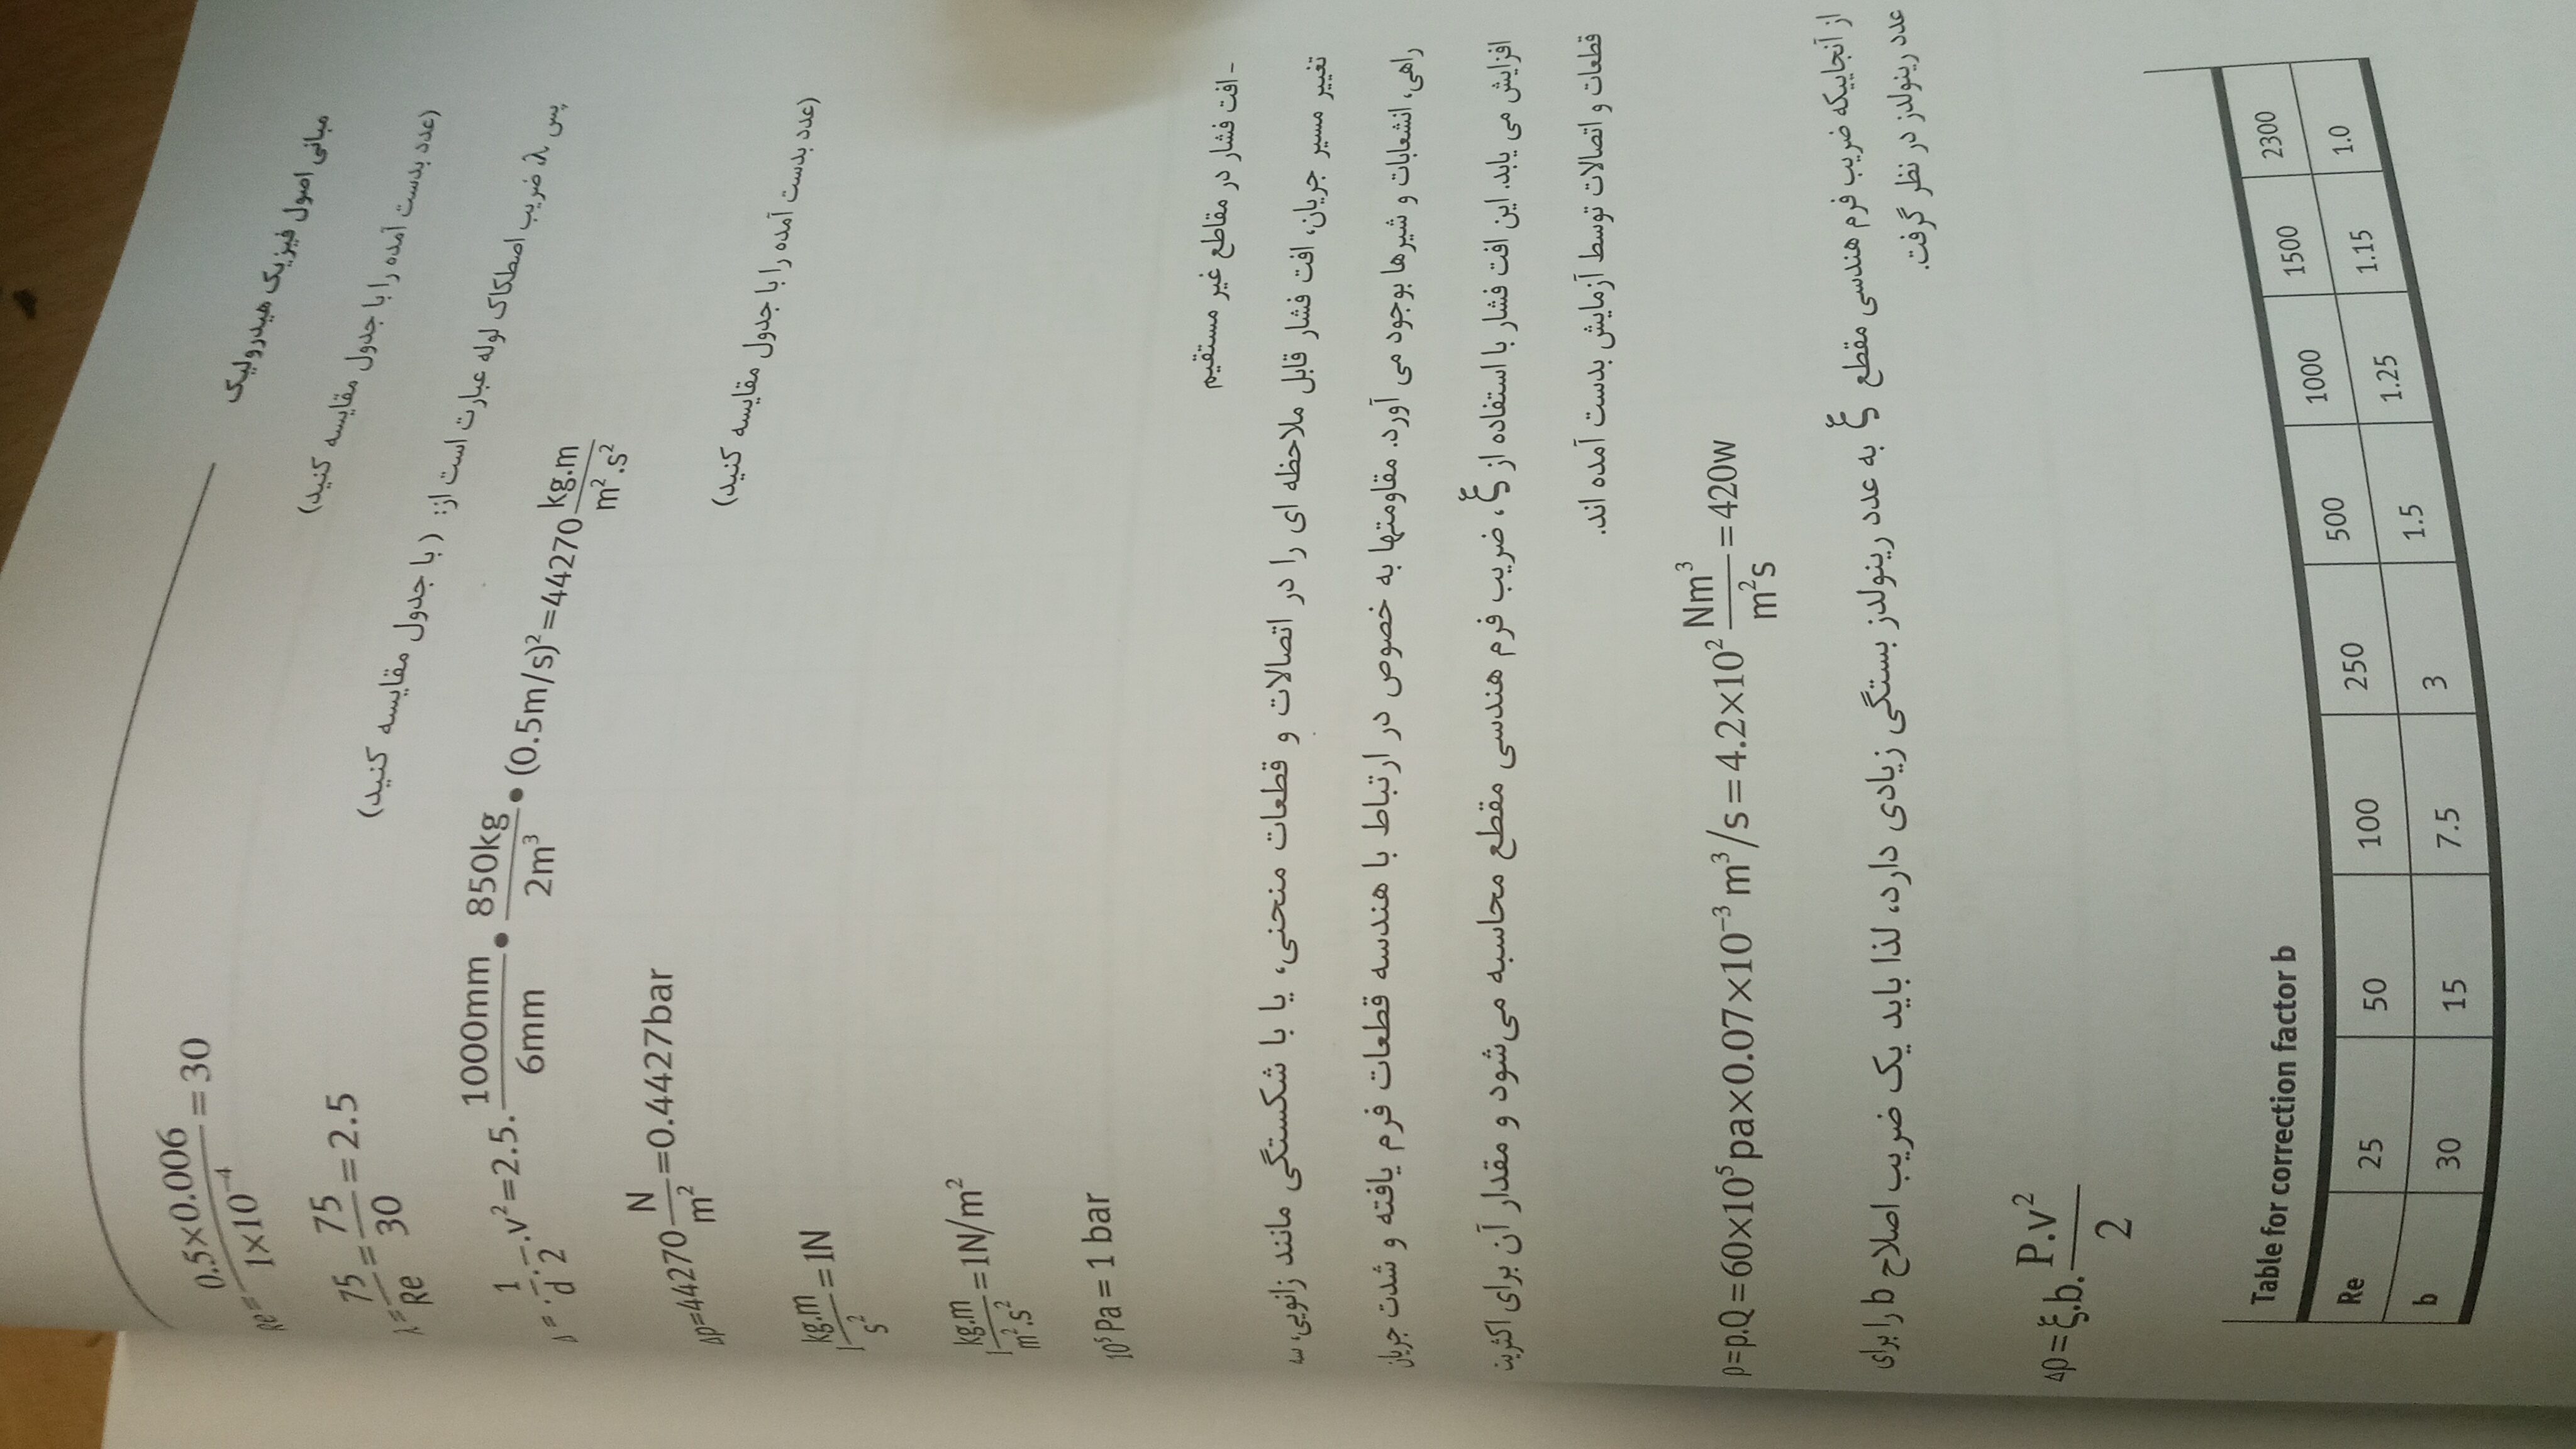 مبانی اصول فیزیک هیدرولیک
Re = 0.5×0.006 / 1×10⁻⁴ = 30
(عدد بدست آمده را با جدول مقایسه کنید)
λ = 75/Re = 75/30 = 2.5
پس λ ضریب اصطکاک لوله عبارت است از: (با جدول مقایسه کنید)
1/d . /2 .v² = 2.5 . 1000mm/6mm • 850kg/2m³ • (0.5m/s)² = 44270 kg.m/m².s²
Δp=44270 N/m² =0.4427bar
(عدد بدست آمده را با جدول مقایسه کنید)
1 kg.m/s² =1N
1 kg.m/m².s² =1N/m²
10⁵ Pa = 1 bar
- افت فشار در مقاطع غیر مستقیم
تغییر مسیر جریان، افت فشار قابل ملاحظه ای را در اتصالات و قطعات منحنی، یا با شکستگی مانند زانویی، سه
راهی، انشعابات و شیرها بوجود می آورد. مقاومتها به خصوص در ارتباط با هندسه قطعات فرم یافته و شدت جریان
افزایش می یابد. این افت فشار با استفاده از ξ، ضریب فرم هندسی مقطع محاسبه می‌شود و مقدار آن برای اکثریت
قطعات و اتصالات توسط آزمایش بدست آمده اند.
p=p.Q=60×10⁵pa×0.07×10⁻³m³/s=4.2×10² Nm³/m²s =420w
از آنجاییکه ضریب فرم هندسی مقطع ξ به عدد رینولدز بستگی زیادی دارد، لذا باید یک ضریب اصلاح b را برای
عدد رینولدز در نظر گرفت.
Δp=ξ.b. P.v²/2
Table for correction factor b
Re 25 50 100 250 500 1000 1500 2300
b 30 15 7.5 3 1.5 1.25 1.15 1.0